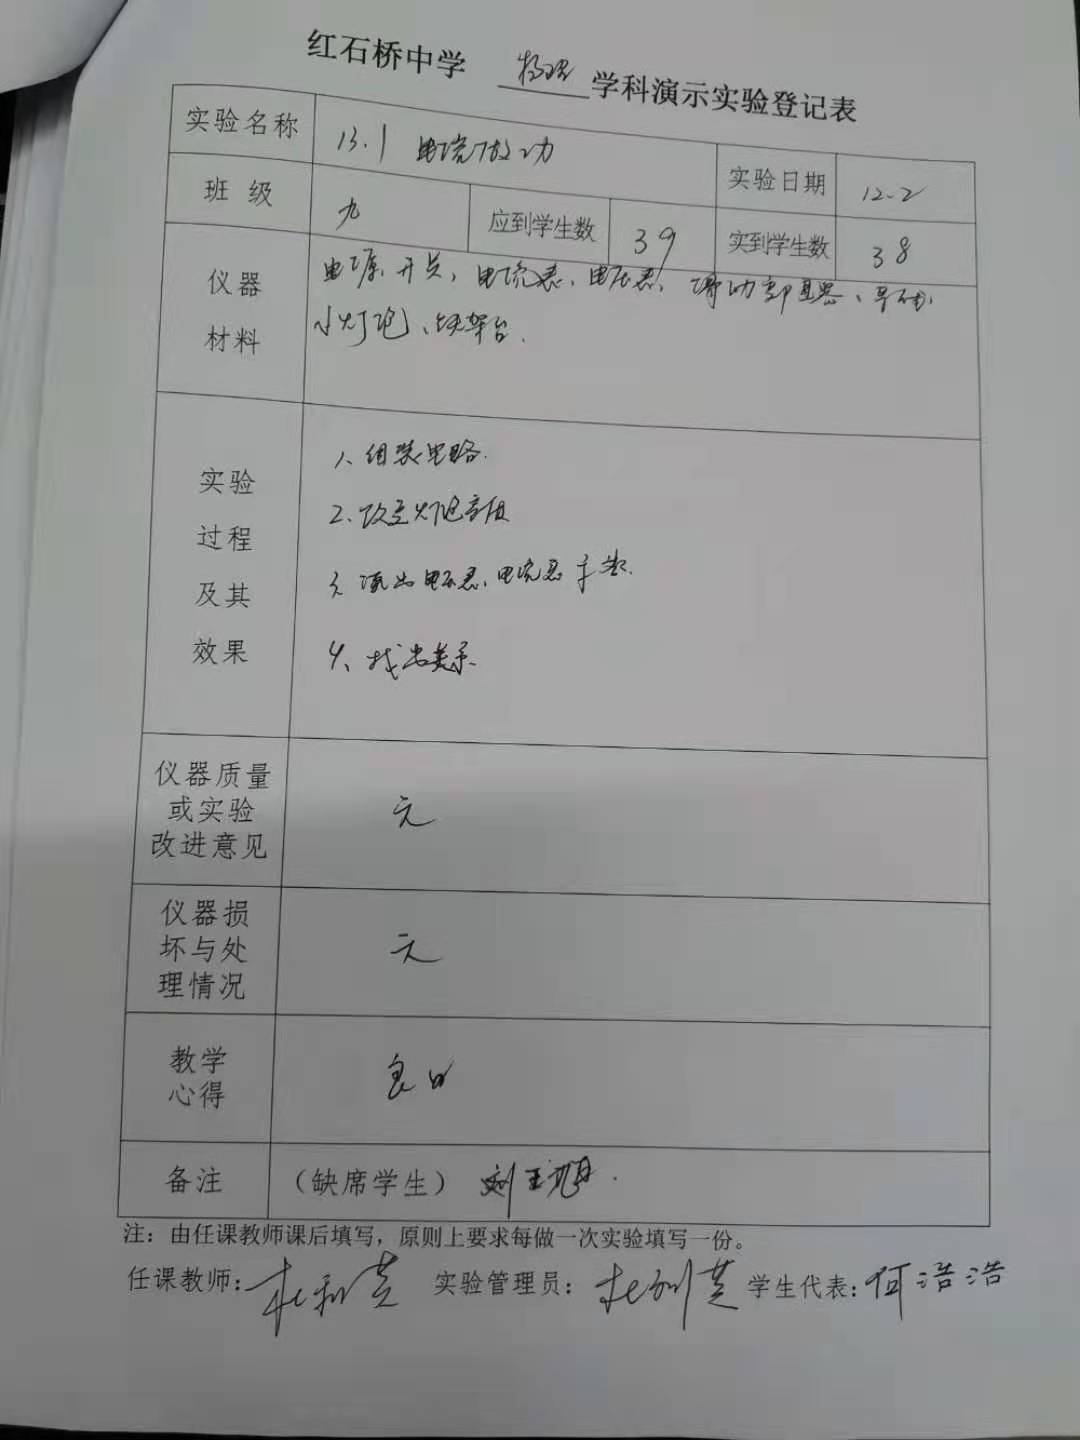 红石桥中学 物理 学科演示实验登记表
实验名称 13.1 电流做功 实验日期 12.2
班级 九 应到学生数 39 实到学生数 38
仪器材料 电源、开关、电流表、电压表、滑动变阻器、导线、
小灯泡、铁架台.
实验过程及其效果
1、组装电路.
2、改变灯泡亮度
3、读出电压表、电流表示数.
4、找出关系.
仪器质量或实验改进意见 无
仪器损坏与处理情况 无
教学心得 良好
备注 (缺席学生) 刘
注：由任课教师课后填写，原则上要求每做一次实验填写一份。
任课教师: 实验管理员: 学生代表: 何浩浩